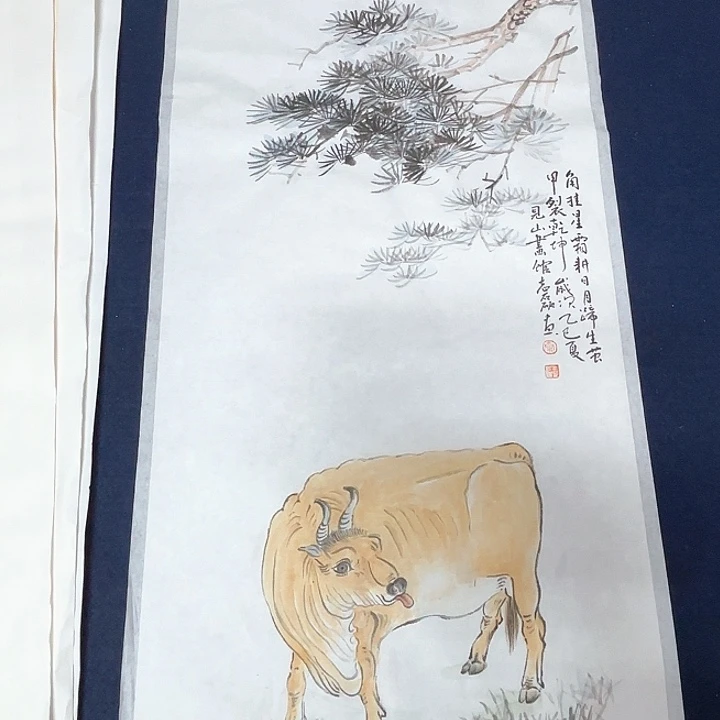 角挂星霜耕日月蹄生茧
甲裂乾坤 歲次乙巳夏
見山畫館志磊畫